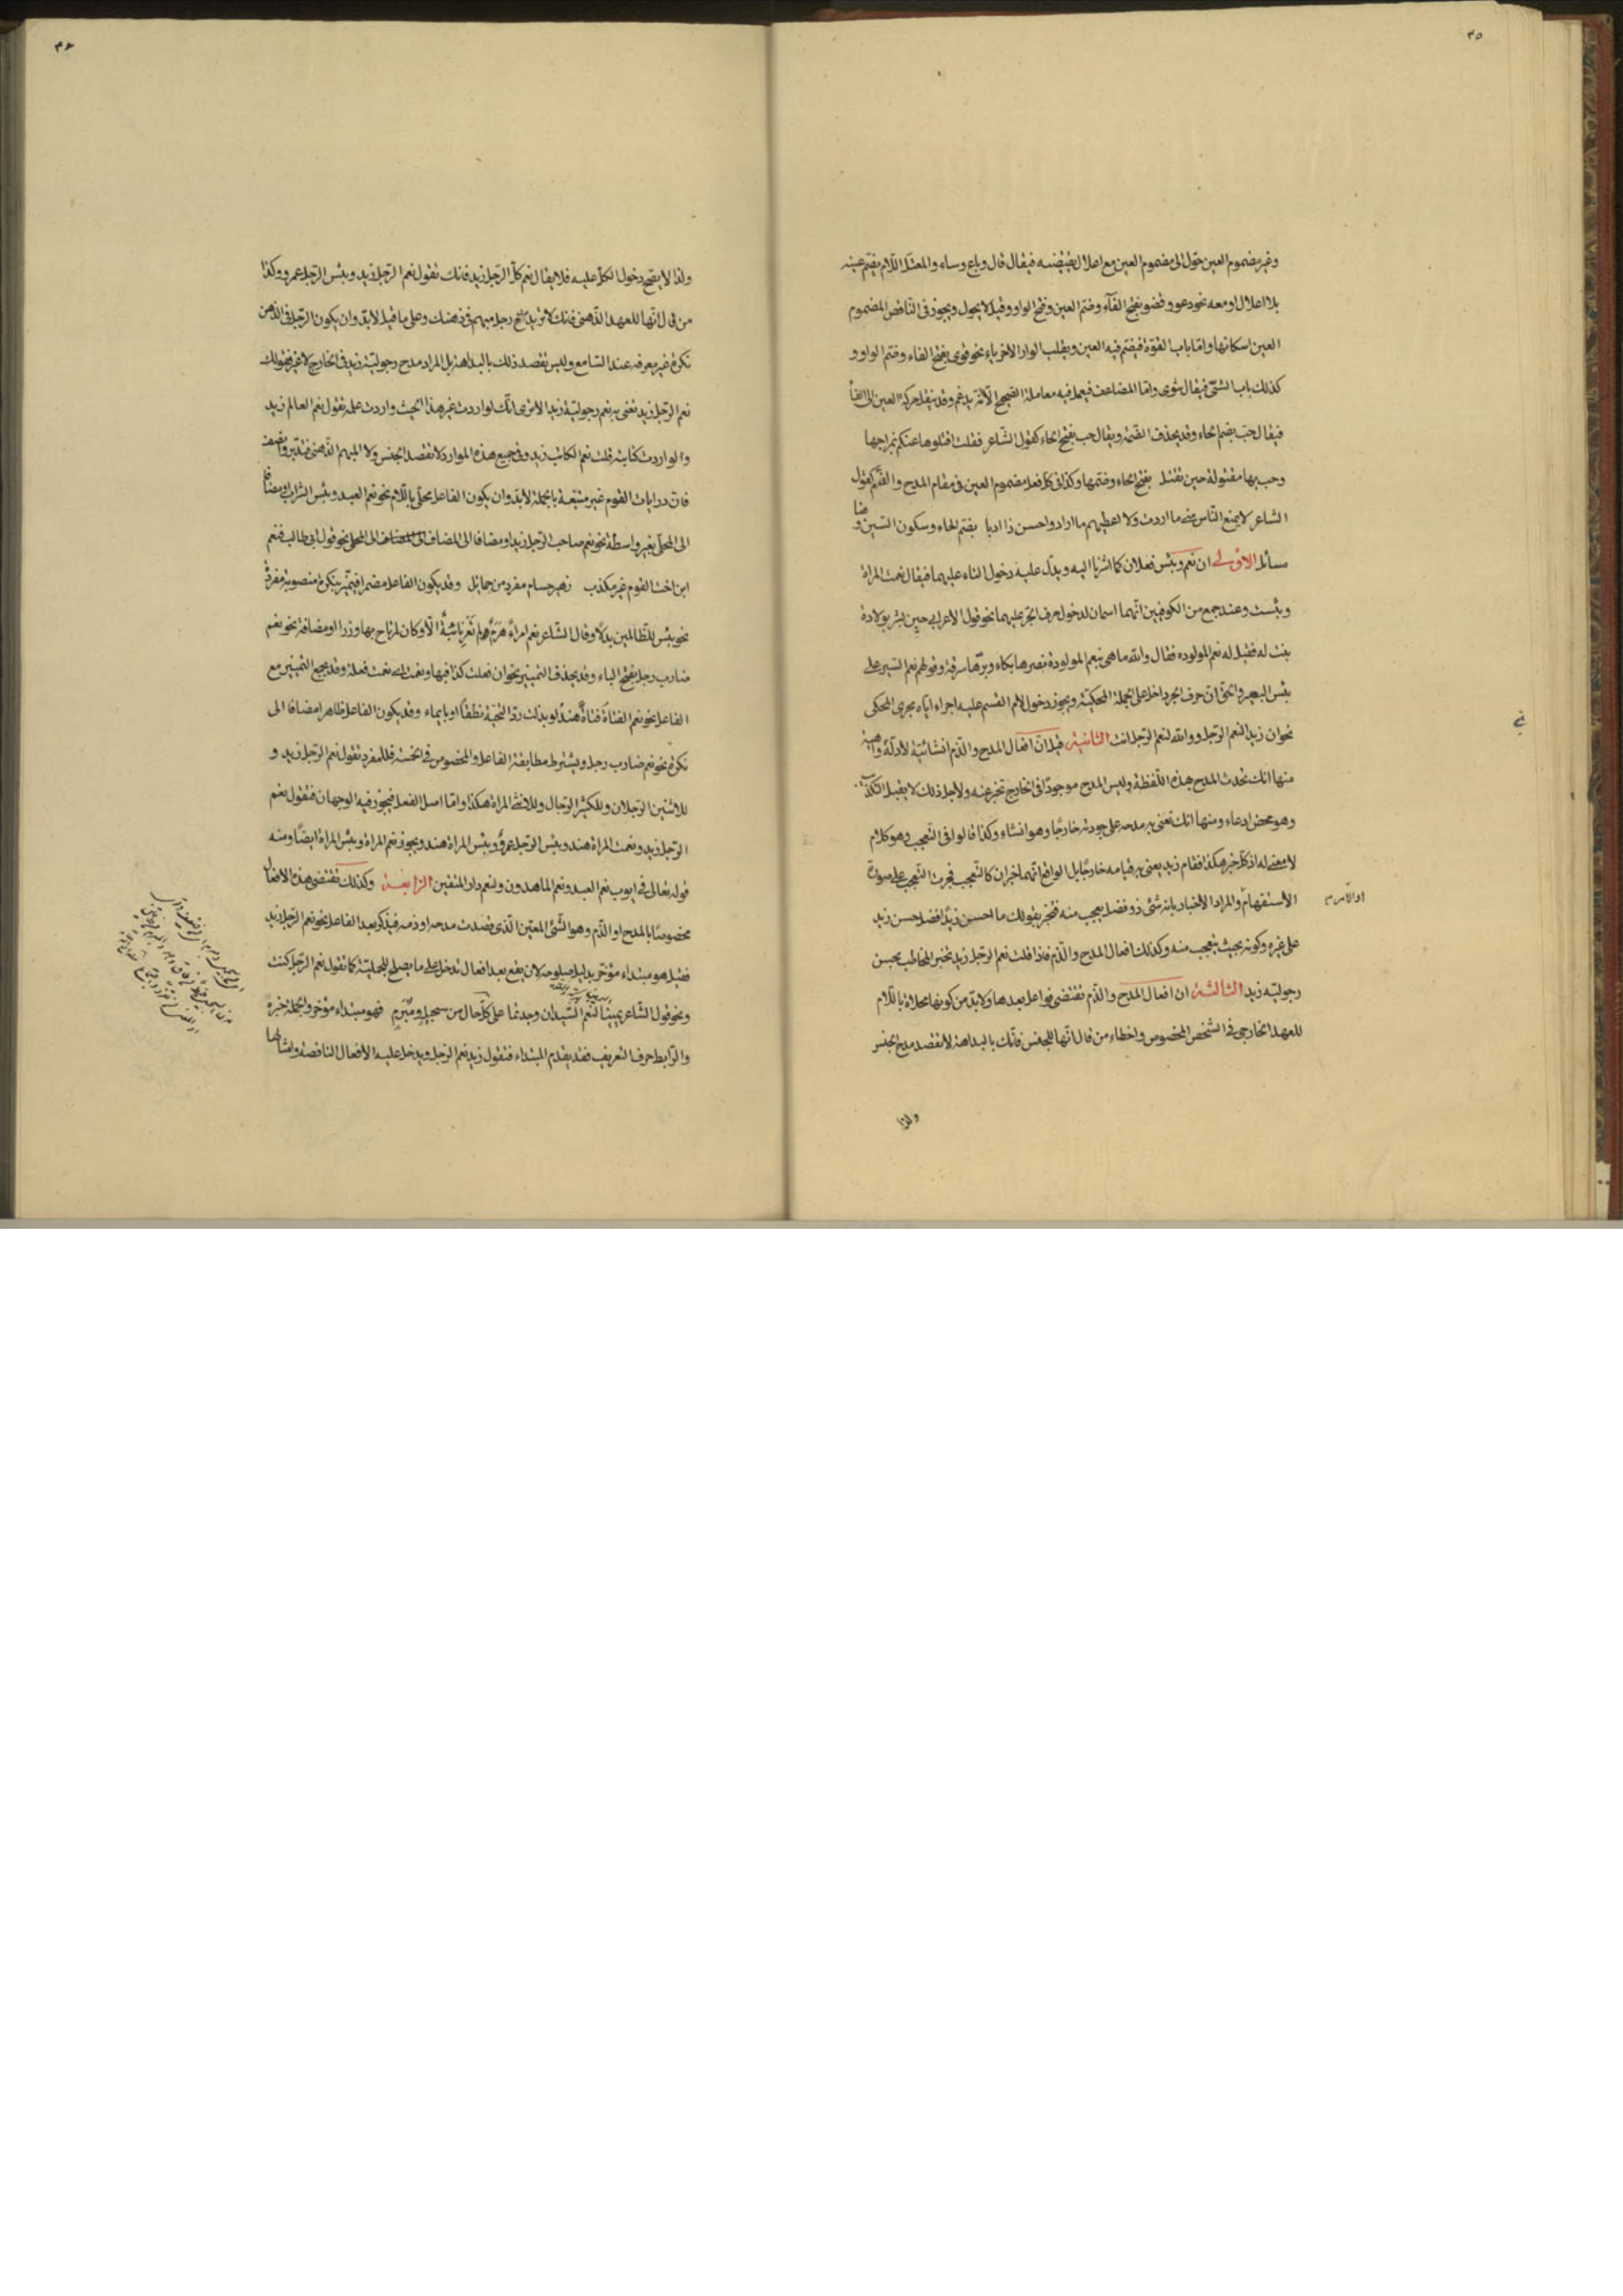 ٣٥
وغير مضموم العين حوّل الى مضموم العين مع اعلال يقتضيه فيقال قال وباع وساء والمعتلّ اللّام يضّم عينه
بلا اعلال او معه نحو دعو وقضو بفتح الفآء وضّم العين وفتح الواو وقيل لا يحول ويجوز فى النّاقص المضموم
العين اسكانها وامّا باب القوّة فيضّم فيه العين ويقلب الواو الاخر ياء نحو قوى بفتح الفاء وضّم الواو و
كذلك باب الشىّ فيقال شوى وامّا المضاعف فيعمل فيه معاملة الصّحيح الّا انّه يدغم وقد ينقل حركة العين الى الفآ
فيقال حبّ بضم الحاء وقد يحذف الضمّة ويقال حب بفتح الحاء كقول الشّاعر فقلت اقتلوها عنكم بمزاجها
وحب بها مقتولة حين تقتل بفتح الحاء وضّمها وكذا فى كلّ فعل مضموم العين فى مقام المدح والذّم كقول
الشاعر لا يمنع النّاس منى ما اردت ولا اعطيهم ما ارادوا حسن ذا ادبا بضّم الحاء وسكون السّين و هنا
مسائل الاولى ان نعم وبئس فعلان كما اشرنا اليه ويدلّ عليه دخول التاء عليهما فيقال نعمت المراة
وبئست وعند جمع من الكوفيين انّهما اسمان لدخول حرف الجرّ عليهما نحو قول الاعرابى حين بشر بولادة
بنت له فقيل له نعم المولوده فقال والله ما هى بنعم المولودة نصرها بكاء وبرّها سرقة وقولهم نعم السّير على
بئس البعير والحق انّ حرف الجرّ داخل على الجملة المحكيّة ويجوز دخول لام القسم عليه اجراء ايّاه مجرى المحكى
نحو ان زيدا لنعم الرّجل ووالله لنعم الرّجل انت الثانية قيل انّ افعال المدح والذّم انشائيّة لادلّة واهية
منها انك تحدث المدح بهذه اللّفظة وليس المدح موجودًا فى الخارج تخبر عنه ولاجل ذلك لا يقبل التكذيب
وهو محض ادعاء ومنها انك تعنى به مدحه على جودته خارجًا وهو انشاء وكذا قالوا فى التّعجب وهو كلام
لا معنى له اذ كلّ خبر هكذا فقام زيد يعنى به قيامه خارجًا بل الواقع انّهما اخباران كالتّعجب فجرت التّعجب على صورة
الاستفهام والمراد الاخبار بانه شئ ذو فضل يعجب منه فتخبر بقولك ما احسن زيدًا فضل حسن زيد
على غيره وكونه بحيث يتعجب منه وكذلك افعال المدح والذّم فاذا قلت نعم الرّجل زيد تخبر المخاطب بحسن
رجوليّته زيد الثالثة ان افعال المدح والذّم تقتضى فواعل بعدها ولا بدّ من كونها محلاة باللّام
للعهد الخارجى فى الشّخص المخصوص واخطاء من قال انّها للجنس فانّك بالبداهة لا تقصد مدح الجنس
ولذا
ولذا لا يصّح دخول الكلّ عليه فلا يقال نعم كلّ الرّجل زيد فانك تقول نعم الرّجل زيد وبئس الرّجل عمرو وكذا
من قال انّها للعهد الذّهنى فانك لا تريد مدح رجل مبهم فى ذهنك وعلى ما قيل لابدّ وان يكون الرّجل فى الذّهن
نكرة غير معرفه عند السّامع وليس تقصد ذلك بالبداهة بل المراد مدح رجوليّة زيد فى الخارج لا غير فقولك
نعم الرّجل زيد تعنى به نعم رجوليّة زيد الا ترى انّك لو اردت غير هذا الحيث واردت علمه تقول نعم العالم زيد
ولو اردت كتابته قلت نعم الكاتب زيد وفى جميع هذه الموارد لا تقصد الجنس ولا المبهم الذّهنى فتدّبر وانصف
فانّ درايات القوم غير متّبعة بالجملة لابدّ وان يكون الفاعل محلّى باللّام نحو نعم العبد وبئس الشّراب او مضافًا
الى المحلّى بغير واسطة نحو نعم صاحب الرّجل زيد او مضافا الى المضاف الى المحلّى نحو قول ابى طالب فنعم
ابن اخت القوم غير مكذب زهير حسام مفرد من حمائل وقد يكون الفاعل مضمرا فيميّز بنكرة منصوبة مفردة
نحو بئس للظّالمين بدلًا وقال الشّاعر نعم امرأً هرم لم تعر نائبة الّا وكان لمرتاح بها وزرا او مضافة نحو نعم
ضارب رجل بفتح الباء وقد يحذف التّمييز نحو ان فعلت كذا فبها ونعمت اى نعمت فعلة وقد يجمع التّمييز مع
الفاعل نحو نعم الفتاة فتاةً هندُ لو بذلت ردّ التّحيّة نطقًا او بايماء وقد يكون الفاعل ظاهرا مضافا الى
نكرة نحو نعم ضارب رجل ويشترط مطابقة الفاعل والمخصوص فى الخمسة فللمفرد تقول نعم الرّجل زيد و
للاثنين الرّجلان وللكثير الرّجال وللانثى المراة هكذا وامّا اصل الفعل فيجوز فيه الوجهان فتقول نعم
الرّجل زيد ونعمت المراة هند وبئس الرّجل عمرو وبئس المراة هند ويجوز نعم المراة وبئس المراة ايضًا ومنه
قوله تعالى فى ايوب نعم العبد ونعم الماهدون ولنعم دار المتّقين الرّابعة وكذلك تقتضى هذه الافعال
مخصوصًا بالمدح او الذّم وهو الشّئ المعيّن الّذى قصدت مدحه او ذمه فيذكر بعد الفاعل نحو نعم الرّجل زيد
فقيل هو مبتداء مؤخّر بدليل صلوحه لان يقع بعد افعال تدخل على ما يصلح للجمليّة كما تقول نعم الرّجل كنت
ونحو قول الشّاعر يمينًا لنعم السّيدان وجدتما على كلّ حال من سحيل ومبرم فهو مبتداء مؤخر والجملة خبره
والرّابط حرف التعريف فقد يقدم المبتداء فتقول زيد نعم الرّجل ويدخل عليه الافعال الناقصة وامثالها